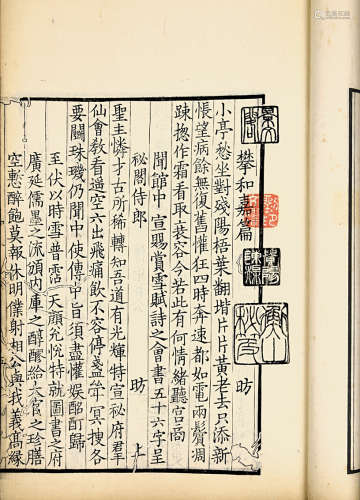 攀和嘉篇
昉
小亭愁坐對殘陽梧葉翻堦片片黃老去只添新
悵望病餘無復舊懽狂四時奔速都如電兩鬢凋
踈揔作霜看取衰容今若此有何情緒聽宮商
聞節中 宣賜賞雪賦詩之會書五十六字呈
祕閣侍郎 昉 上
聖主憐才古所稀轉知吾道有光輝特宣祕府羣
仙會教看遥空六出飛痛飲不容停盞斝冥搜各
要鬭珠璣仍聞中使傳中旨須盡懽娛酩酊歸
王伏以時雪普霑 天顏允恱特就圖書之府
廣延儒墨之流頒内庫之醇醪給太官之珍膳
空慙醉飽莫報休明僕射相公與我義高緣